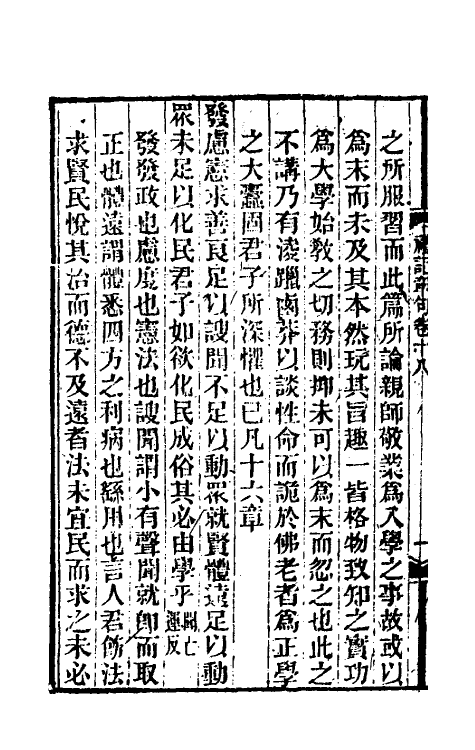 禮記章句卷十八
之所服習而此篇所論親師敬業爲入學之事故或以
爲末而未及其本然玩其旨趣一皆格物致知之實功
爲大學始教之切務則抑未可以爲末而忽之也此之
不講乃有淩躐鹵莽以談性命而詭於佛老者爲正學
之大蠹固君子所深懼也已凡十六章
發慮憲求善良足以謏聞不足以動眾就賢體遠足以動
眾未足以化民君子如欲化民成俗其必由學乎聞亡運反
發發政也慮度也憲法也謏聞謂小有聲聞就卽而取
正也體遠謂體悉四方之利病也繇用也言人君飭法
求賢民悅其治而德不及遠者法未宜民而求之未必